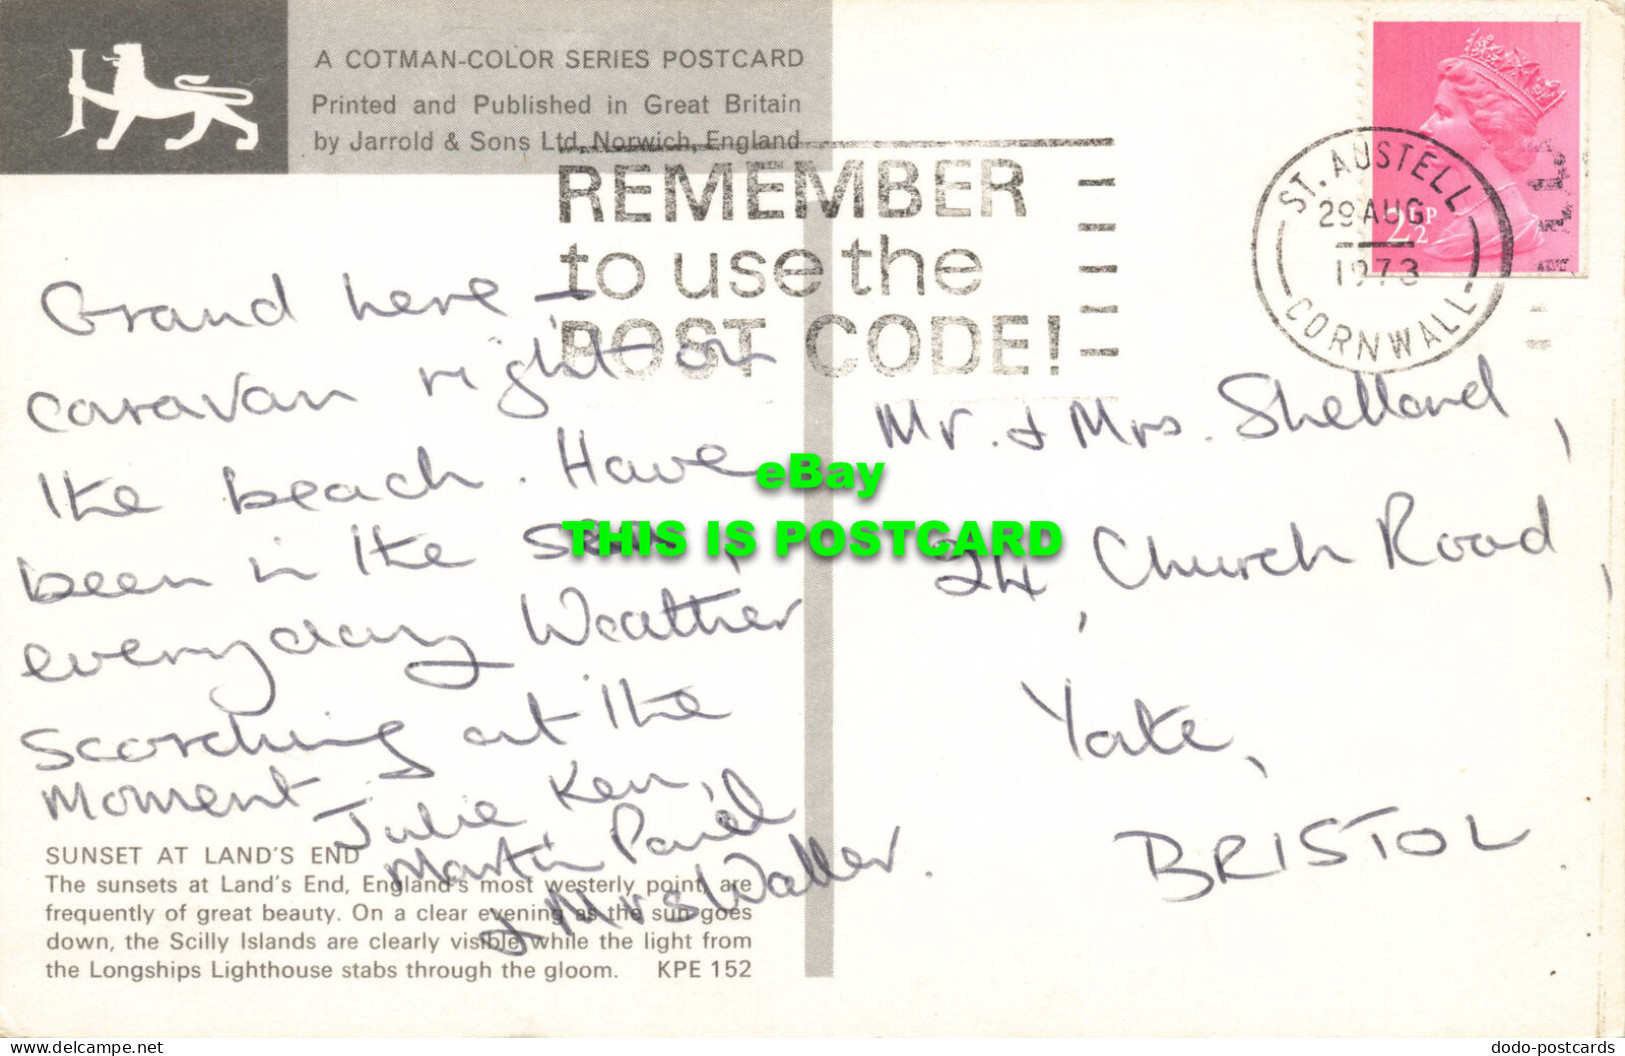 A COTMAN-COLOR SERIES POSTCARD
Printed and Published in Great Britain
by Jarrold & Sons Ltd, Norwich, England
REMEMBER
to use the
POST CODE!
ST. AUSTELL
29 AUG
1973
CORNWALL
2½P
Grand here –
caravan right on
the beach. Have
been in the sea
everyday Weather
Scorching at the
Moment
Julie Ken,
Martin Paul
& Mrs Waller.
Mr. & Mrs. Shelland,
24, Church Road,
Yate,
BRISTOL
eBay
THIS IS POSTCARD
SUNSET AT LAND'S END
The sunsets at Land's End, England's most westerly point, are
frequently of great beauty. On a clear evening as the sun goes
down, the Scilly Islands are clearly visible while the light from
the Longships Lighthouse stabs through the gloom. KPE 152
www.delcampe.net
dodo-postcards